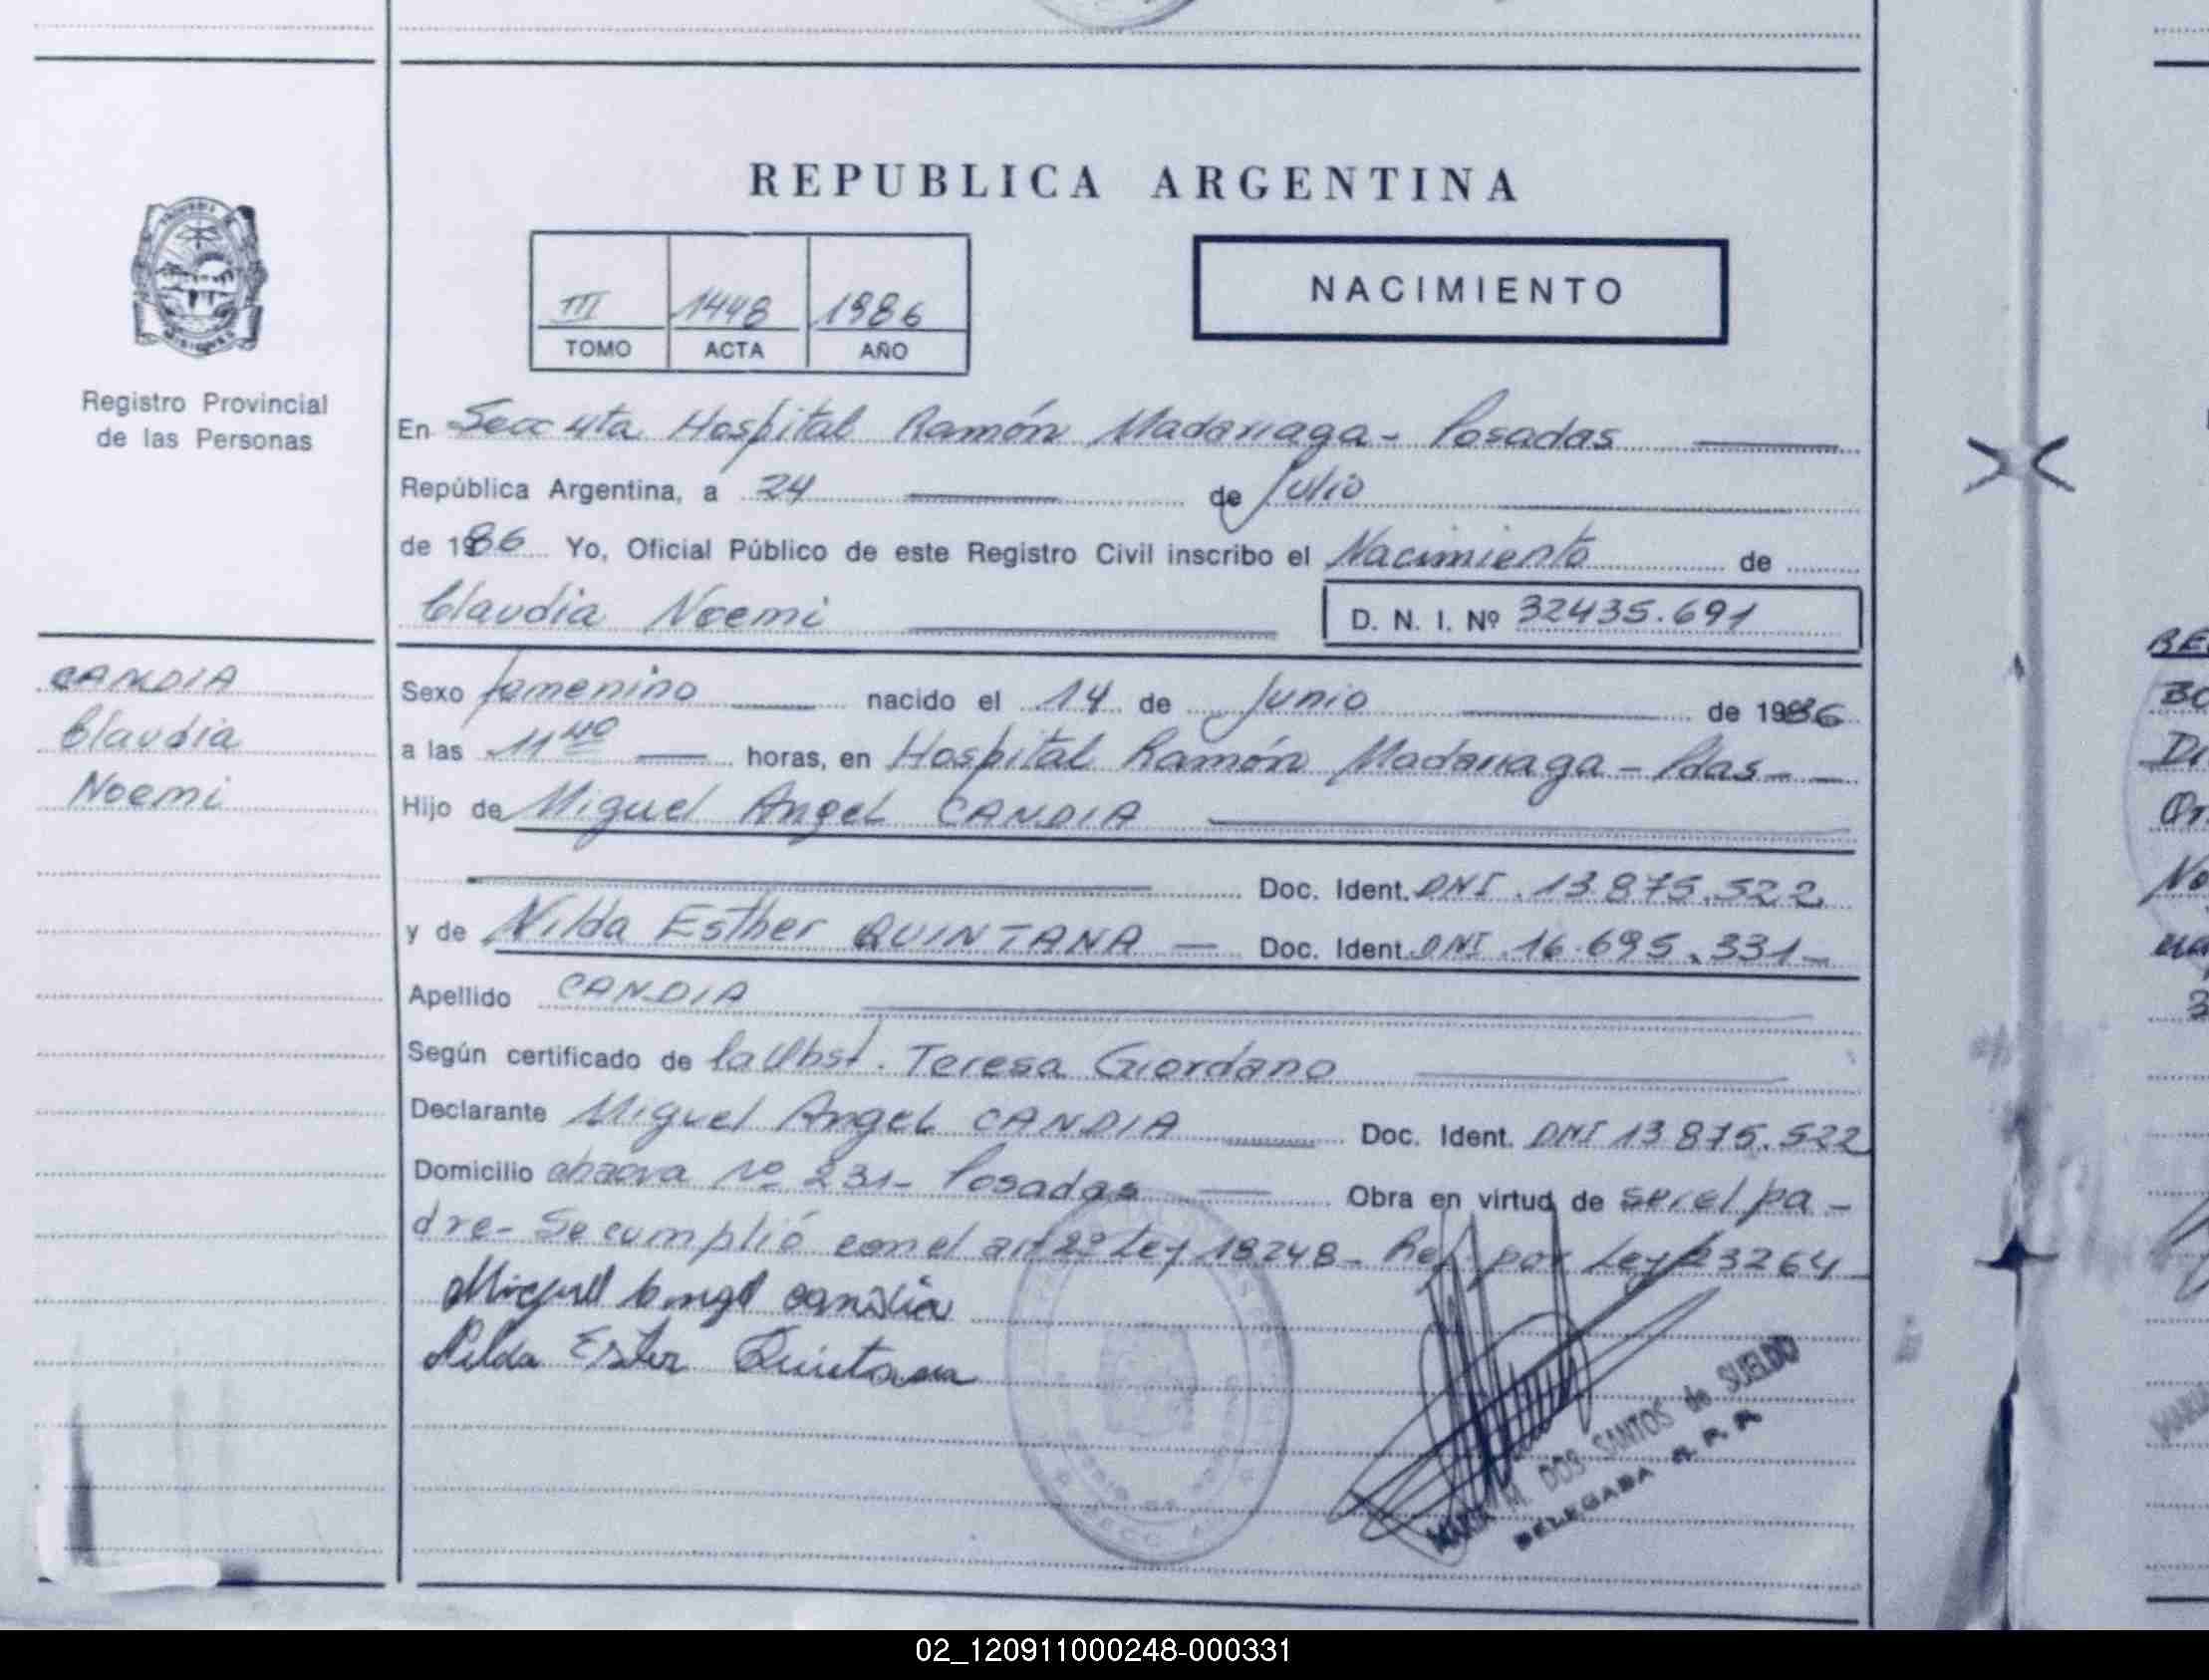 REPUBLICA ARGENTINA
NACIMIENTO
III 1448 1986
TOMO ACTA AÑO
Registro Provincial
de las Personas
En Secc 4ta Hospital Ramón Madariaga - Posadas
República Argentina, a 24 de Julio
de 1986 Yo, Oficial Público de este Registro Civil inscribo el Nacimiento de
Claudia Noemi D. N. I. Nº 32435.691
CANDIA
Claudia
Noemi
Sexo femenino nacido el 14 de Junio de 1986
a las 11 40 horas, en Hospital Ramón Madariaga - Pdas -
Hijo de Miguel Angel CANDIA
Doc. Ident. DNI. 13.875.522
y de Nilda Esther QUINTANA Doc. Ident. DNI 16.695.331
Apellido CANDIA
Según certificado de la Obst. Teresa Giordano
Declarante Miguel Angel CANDIA Doc. Ident. DNI 13 875.522
Domicilio Nº 231 - Posadas Obra en virtud de ser el pa -
dre - Se cumplió con el art 2º Ley 18248 - Ref. por Ley 23264
Miguel Angel Candia
Nilda Ester Quintana
MARIA M. DOS SANTOS de SUELDO
DELEGADA R. P. P.
02_120911000248-000331